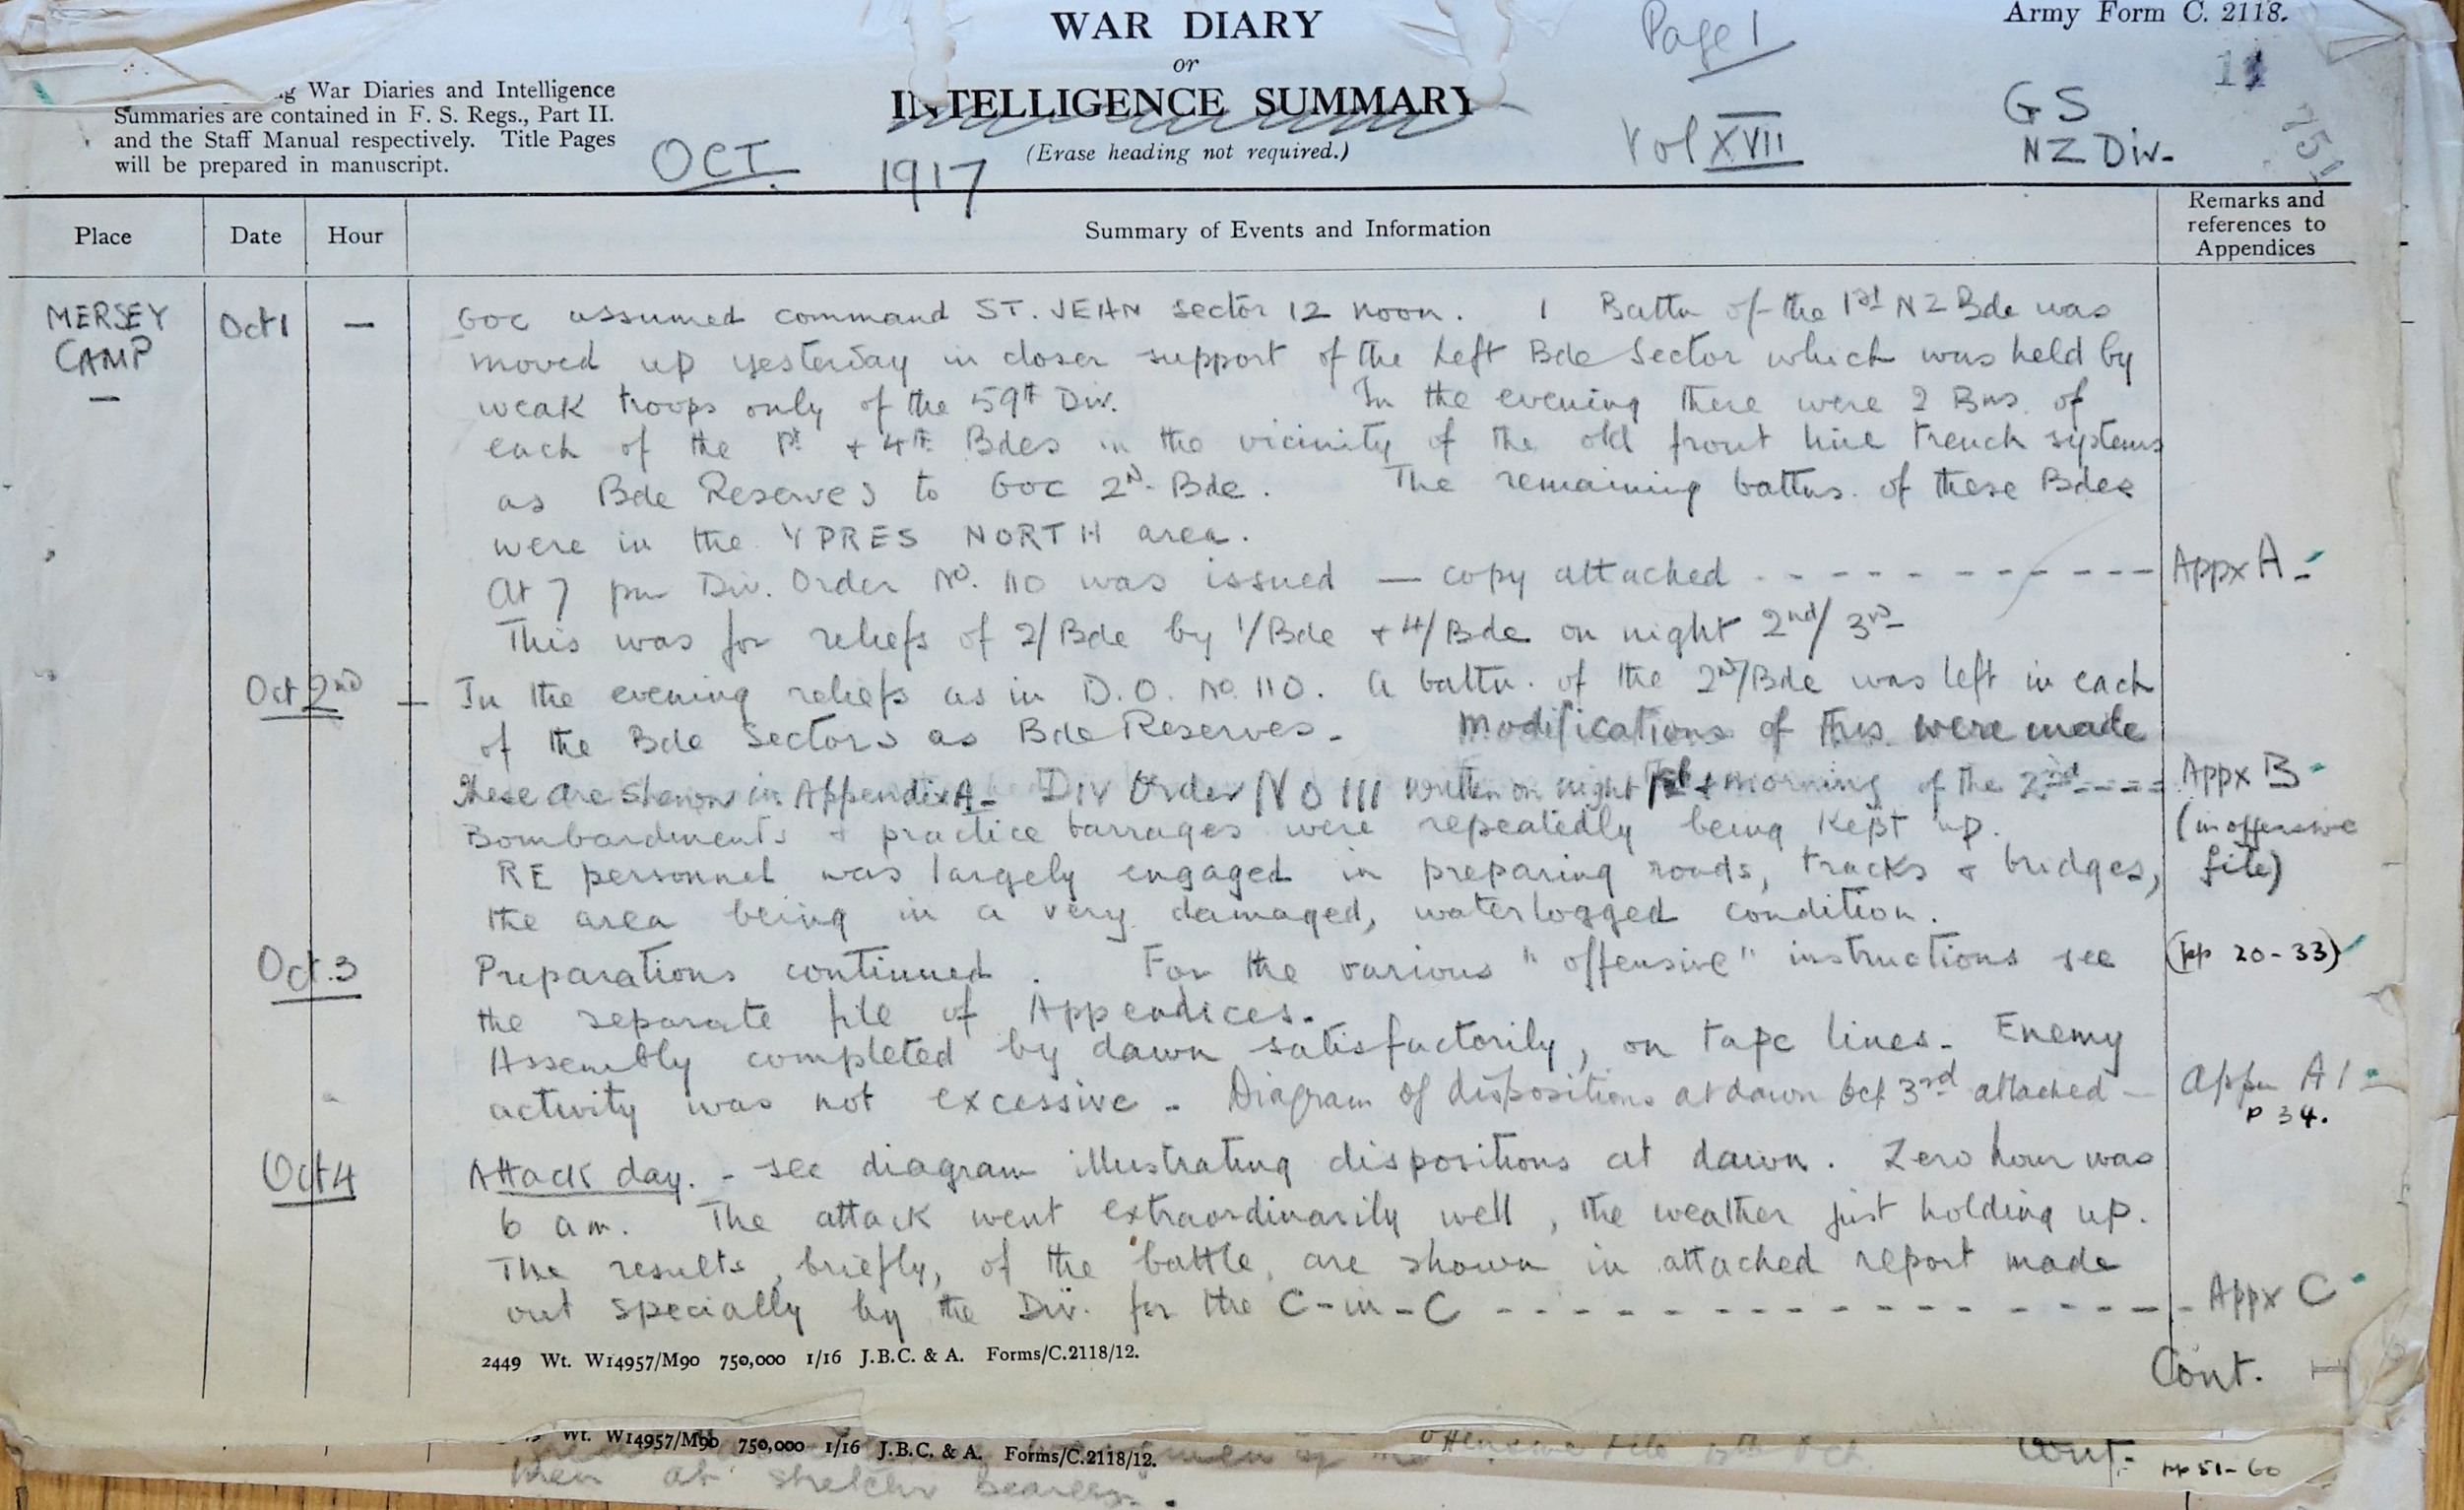 WAR DIARY
or
INTELLIGENCE SUMMARY
(Erase heading not required.)
Army Form C. 2118.
Page 1
Vol XVII
GS
NZ Div.
11
751
War Diaries and Intelligence
Summaries are contained in F. S. Regs., Part II.
and the Staff Manual respectively. Title Pages
will be prepared in manuscript.
OCT. 1917
Place Date Hour Summary of Events and Information Remarks and references to Appendices
MERSEY CAMP Oct 1 — GOC assumed command ST. JEAN sector 12 noon. 1 Battn of the 1st NZ Bde was
moved up yesterday in closer support of the left Bde Sector which was held by
weak troops only of the 59th Div. In the evening there were 2 Bns. of
each of the 1st + 4th Bdes in the vicinity of the old front line trench systems
as Bde Reserves to GOC 2nd Bde. The remaining battns. of these Bdes
were in the YPRES NORTH area.
At 7 pm Div. Order No. 110 was issued — copy attached - - - - - - - - - - - Appx A -
This was for reliefs of 2/Bde by 1/Bde + 4/Bde on night 2nd/3rd
Oct 2nd — In the evening reliefs as in D.O. No. 110. A battn. of the 2nd/Bde was left in each
of the Bde Sectors as Bde Reserves. Modifications of this were made
These are shown in Appendix A - Div Order No 111 written on night 1st + morning of the 2nd - - - - Appx B -
Bombardments + practice barrages were repeatedly being kept up. (in offensive
RE personnel was largely engaged in preparing roads, tracks + bridges, file)
the area being in a very damaged, waterlogged condition.
Oct. 3 Preparations continued. For the various "offensive" instructions see (pp 20-33)
the separate file of Appendices.
Assembly completed by dawn satisfactorily, on tape lines. Enemy
activity was not excessive - Diagram of dispositions at dawn Oct 3rd attached — Appx A1 -
p 34.
Oct 4 Attack day. - see diagram illustrating dispositions at dawn. Zero hour was
6 am. The attack went extraordinarily well, the weather just holding up.
The results, briefly, of the battle, are shown in attached report made
out specially by the Div. for the C-in-C - - - - - - - - - - - - - - - - Appx C
2449 Wt. W14957/M90 750,000 1/16 J.B.C. & A. Forms/C.2118/12.
Cont.
Wt. W14957/M90 750,000 1/16 J.B.C. & A. Forms/C.2118/12.
offensive file
Cont.
pp 51-60
men as stretcher bearers.